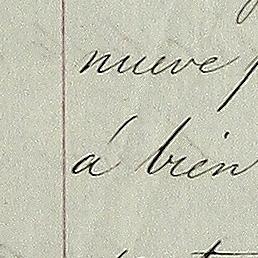 nueve
á bien